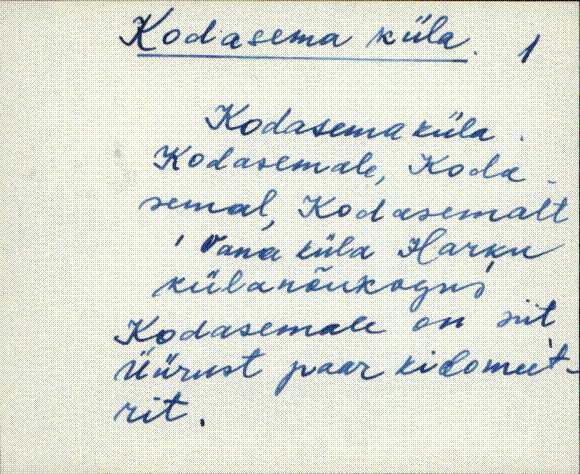 Kodasema küla. 1
Kodasema küla.
Kodasemale, Koda-
semal, Kodasemalt
' Vana küla Harku
külanõukogus'
Kodasemale on siit
Üürust paar kilomeet-
rit.